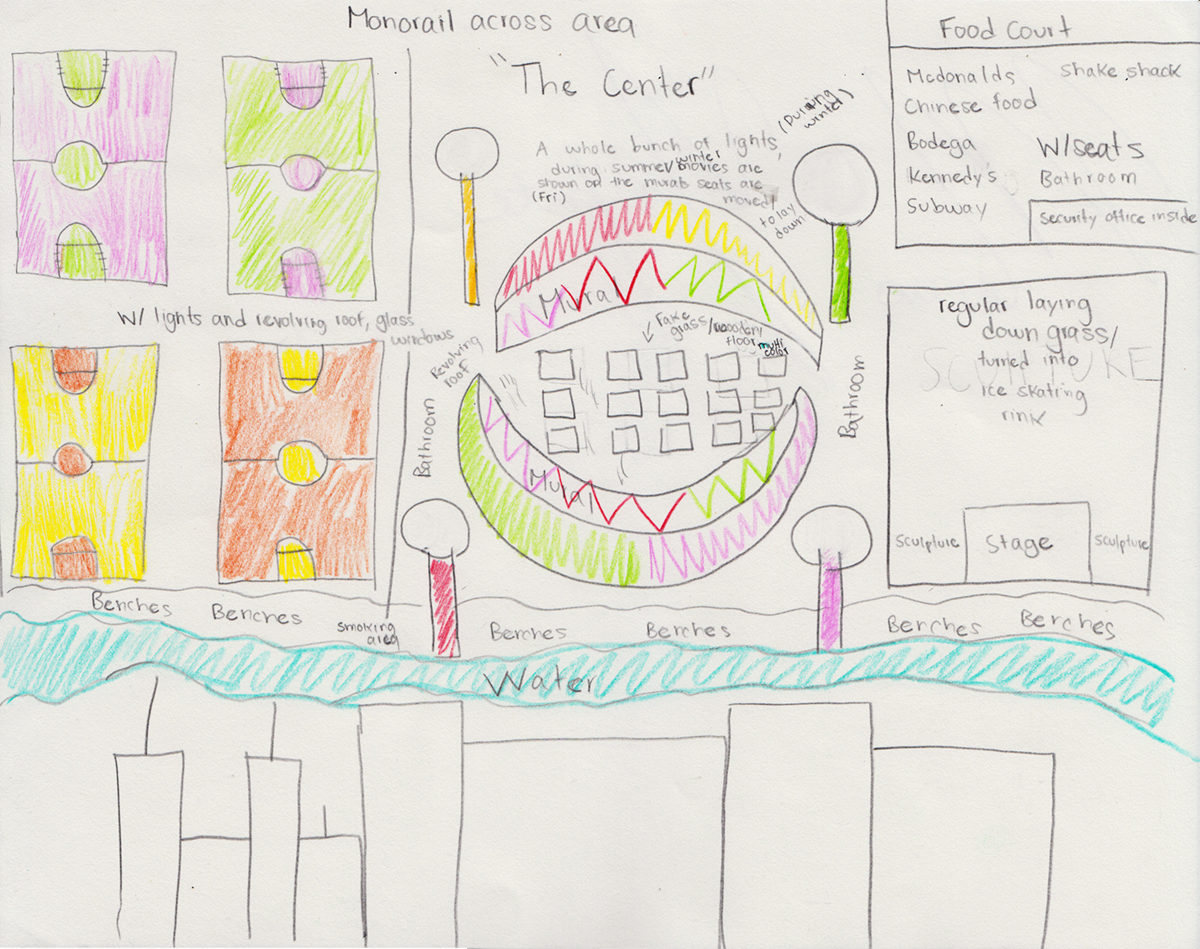 Monorail across area
"The Center"
A whole bunch of lights, (During winter)
during summer/winter movies are
shown on the murals seats are
(Fri) moved
to lay
down
Mural
fake
grass/wooden
floor multi
color
Revolving
roof
Bathroom
Bathroom
Mural
w/ lights and revolving roof, glass
windows
Food Court
Mcdonalds
Shake shack
Chinese food
Bodega
W/seats
Kennedy's
Bathroom
Subway
Security office inside
regular laying
down grass/
turned into
ice skating
rink
Sculpture
Stage
Sculpture
Benches
Benches
smoking
area
Benches
Benches
Benches
Benches
Water